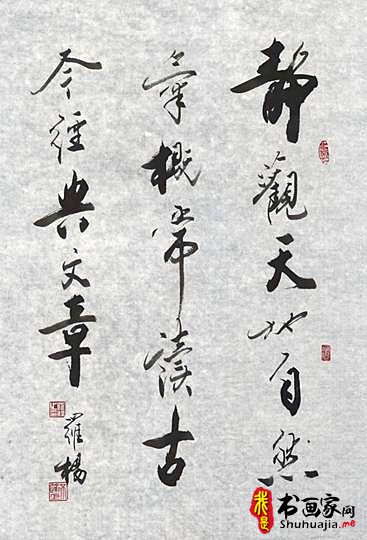 靜觀天地自然
氣概常讀古
今經典文章
羅楊
我是书画家网
Shuhuajia.me